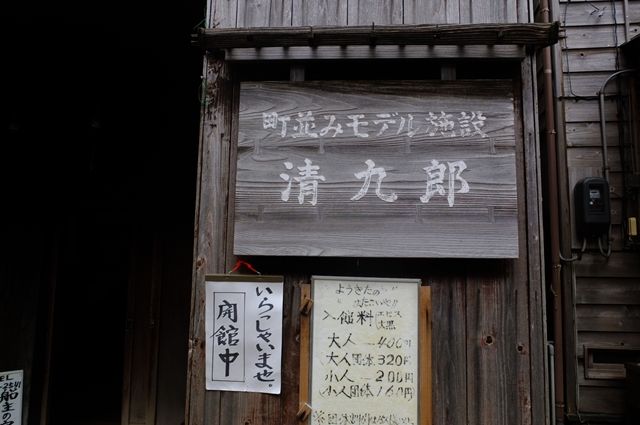 町並みモデル施設
清九郎
いらっしゃいませ。
開館中
ようきたの
入館料
大人 — 400円
大人団体 320円
小人 — 200円
小人団体 160円
船主の